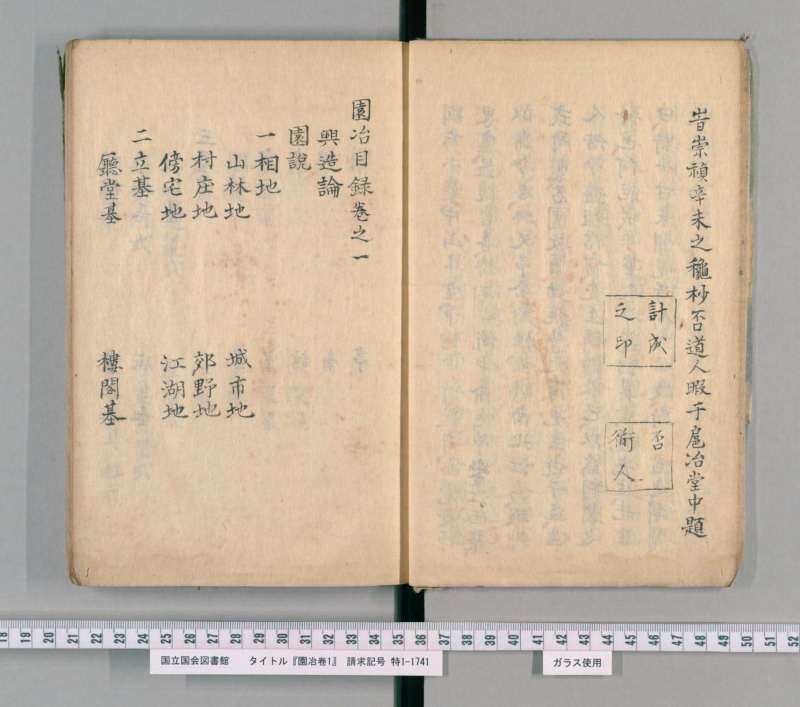 旹崇禎辛未之龝杪否道人暇于扈冶堂中題
計成
之印
否
衜人
園冶目録卷之一
興造論
園說
一相地
山林地
城市地
村庄地
郊野地
傍宅地
江湖地
二立基
廳堂基
樓閣基
18 19 20 21 22 23 24 25 26 27 28 29 30 31 32 33 34 35 36 37 38 39 40 41 42 43 44 45 46 47 48 49 50 51 52
国立国会図書館 タイトル『園冶巻1』 請求記号 特1-1741
ガラス使用